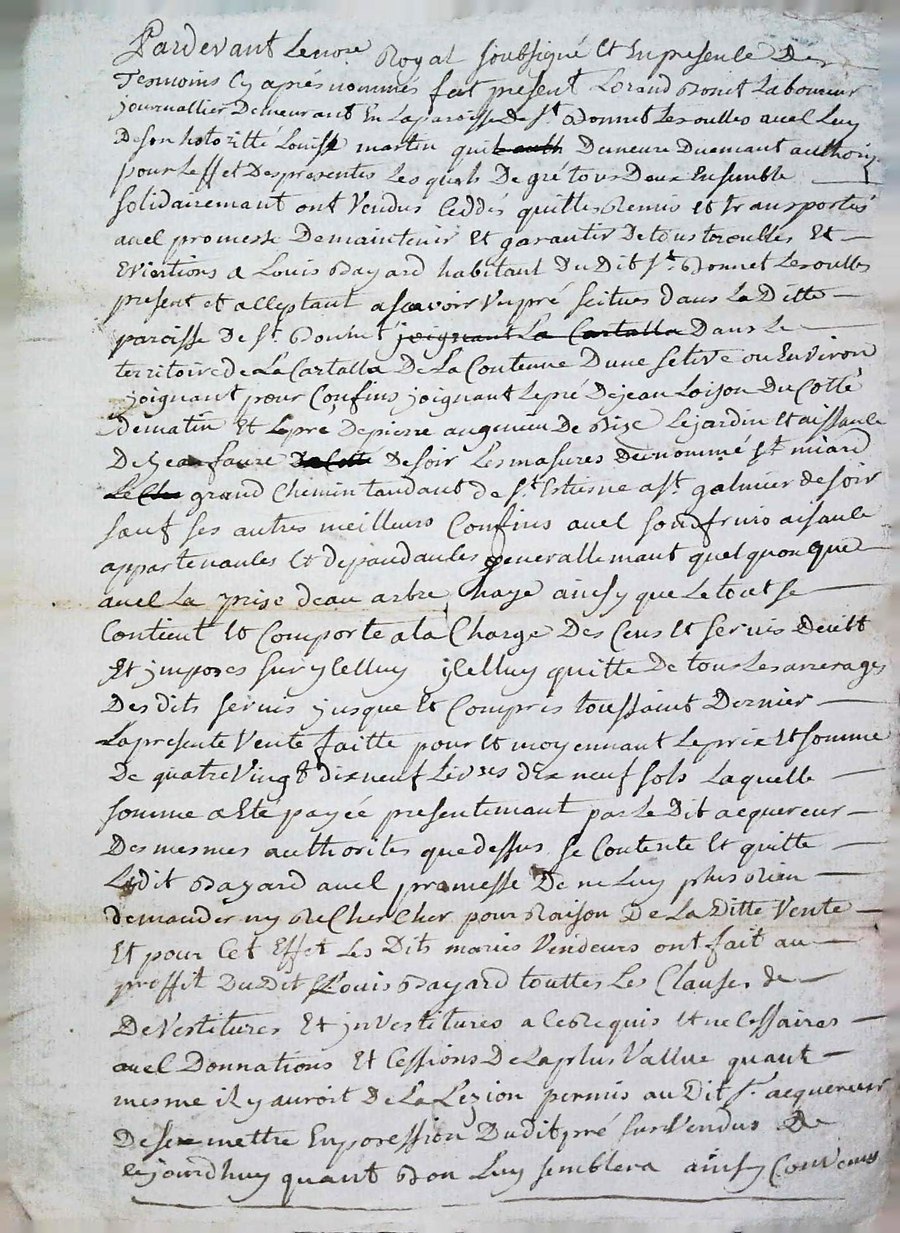 Pardevant Le no.re Royal soubsigné Et En presence De
Tesmoins Cy aprés nommés fut present Lorand Bonit Laboureur
journallier Demeurant En La paroisse De St. Bonnet Les oulles avec Luy
De son hotoritté Louise martin qui Demeure Duemant authori
pour Leffet Des presentes Les quels De gré tous Deux Ensemble
solidairemant ont Vendus Ceddés quittes Remis et transportés
avec promesse De maintenir Et garantir De tous troubles Et
Evictions a Louis Bayard habitant Du Dit St. Bonnet Les oulles
present et acceptant ascavoir Un pré scitues Dans La Ditte
paroisse De St. Bonnet joignant La Cartalla Dans Le
territoire de La Cartalla De La Contenue Dune setive ou Environ
joignant pour Confins joignant Le pré De jean Loison Du Cotté
de matin Et Le pre De pierre De Bize Le jardin Et aissance
De jean faure De soir Les masures De nommé miard
grand Chemin tandant de St. Estiene a St. galmier de soir
sauf ses autres meilleurs Confins avec son fruis aisance
appartenances Et depandances generallemant quelquonque
avec La prise deau arbre haye ainsy que Le tout se
Contient Et Comporte a la Charge Des Cens Et servis
Et imposes sur ycelluy ycelluy quitte De tous Les arrerages
Des dits servis jusque Et Compris toussaint Dernier
La presente Vente faitte pour Et moyennant Le prix Et somme
De quatre Vingt dix neuf Livres dix neuf sols Laquelle
somme a Eté payée presentemant par Le Dit acquereur
Des mesmes authorites que dessus se Contente Et quitte
Ledit Bayard avec promesse De ne Luy plus Rien
demander ny ReCherCher pour Raison De La Ditte Vente
Et pour Cet Effet Les Dits mariés Vendeurs ont fait au
proffit Du Dit Louis Bayard touttes Les Clauses de
De Vestitures Et investitures a Ce Requis Et neCessaires
avec Donnations Et Cessions De La plus Vallue quant
mesme il y auroit De La Lezion permis au Dit Sr. acquereur
De se mettre En pocession Du dit pré sus Vendus De
Cejourdhuy quant Bon Luy semblera ainsy Convenus